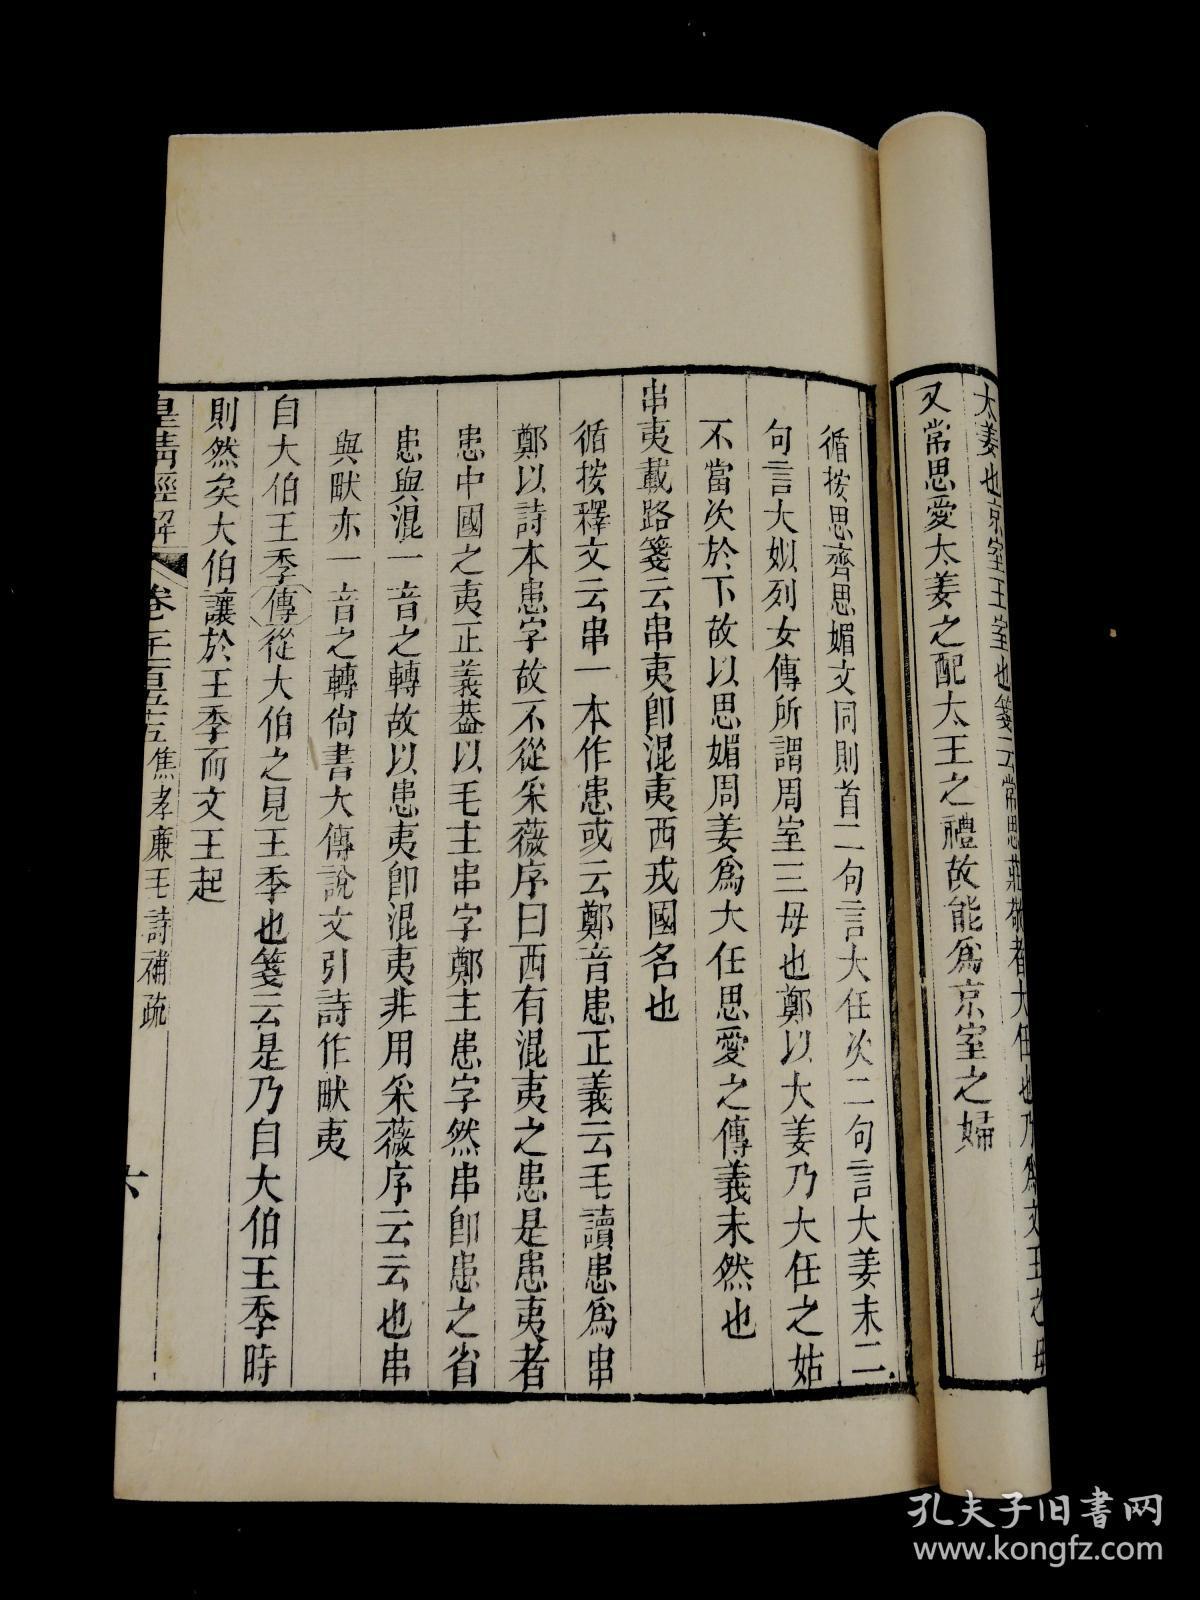 太姜也京室王室也箋云常思莊敬者大任也乃為文王之母
又常思愛太姜之配太王之禮故能爲京室之婦
循按思齊思媚文同則首二句言大任次二句言大姜末二
句言大姒列女傳所謂周室三母也鄭以大姜乃大任之姑
不當次於下故以思媚周姜爲大任思愛之傳義未然也
串夷載路箋云串夷卽混夷西戎國名也
循按釋文云串一本作患或云鄭音患正義云毛讀患爲串
鄭以詩本患字故不從采薇序曰西有混夷之患是患夷者
患中國之夷正義葢以毛主串字鄭主患字然串卽患之省
患與混一音之轉故以患夷卽混夷非用采薇序云云也串
與畎亦一音之轉尙書大傳說文引詩作畎夷
自大伯王季傳從大伯之見王季也箋云是乃自大伯王季時
則然矣大伯讓於王季而文王起
皇淸經解 卷一千一百五十五 焦孝廉毛詩補疏 六
孔夫子旧书网
www.kongfz.com